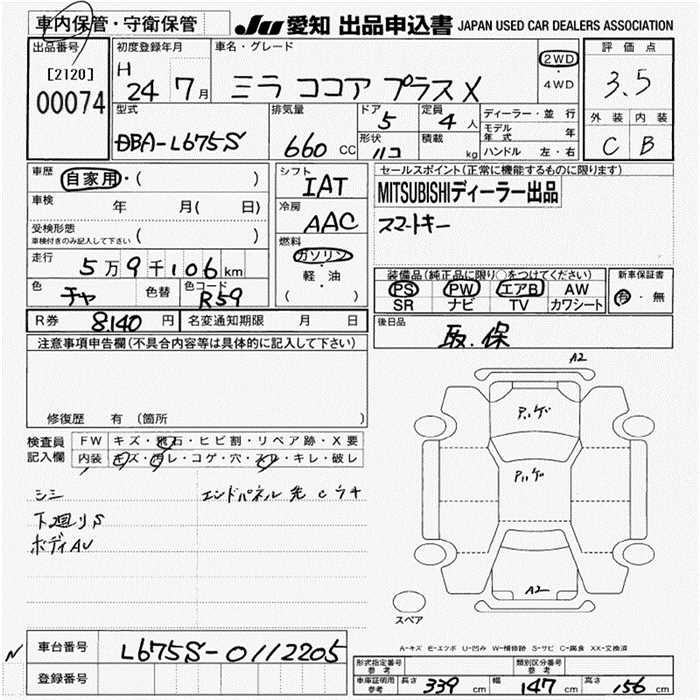 車内保管・守衛保管
JU 愛知 出品申込書 JAPAN USED CAR DEALERS ASSOCIATION
出品番号 [2120] 00074
初度登録年月 H 24 7月
車名・グレード ミラ ココア プラスX
2WD・4WD
評価点 3.5
外装 内装
C B
型式 DBA-L675S
排気量 660 CC
ドア 5
形状 ハコ
定員 4 人
積載 kg
ディーラー・並行
モデル年式 年
ハンドル 左・右
車歴 自家用・( )
車検 年 月( 日)
受検形態 車検付きのみ記入して下さい ( )
走行 5万9千106km
色 チャ 色替 色コード R59
シフト IAT
冷房 AAC
燃料 ガソリン・軽・油 ( )
セールスポイント(正常に機能するものに限ります)
MITSUBISHIディーラー出品
スマートキー
装備品(純正品に限り○をつけてください)
PS PW エアB AW
SR ナビ TV カワシート
新車保証書
有・無
R券 8.140 円 名変通知期限 月 日
後日品 取.保
注意事項申告欄(不具合内容等は具体的に記入して下さい)
修復歴 有 (箇所 )
検査員記入欄
FW キズ・飛石・ヒビ割・リペア跡・X要
内装 キズ・汚レ・コゲ・穴・スレ・キレ・破レ
シミ エンドパネル 先
下廻りS
ボディAU
A2
A2
スペア
A-キズ E-エクボ U-凹み W-補修跡 S-サビ C-腐食 XX-交換済
N
車台番号 L675S-0112205
登録番号
形式指定番号 参考 類別区分番号 参考
車庫証明用 参考 長さ 339 cm 幅 147 cm 高さ 156 cm